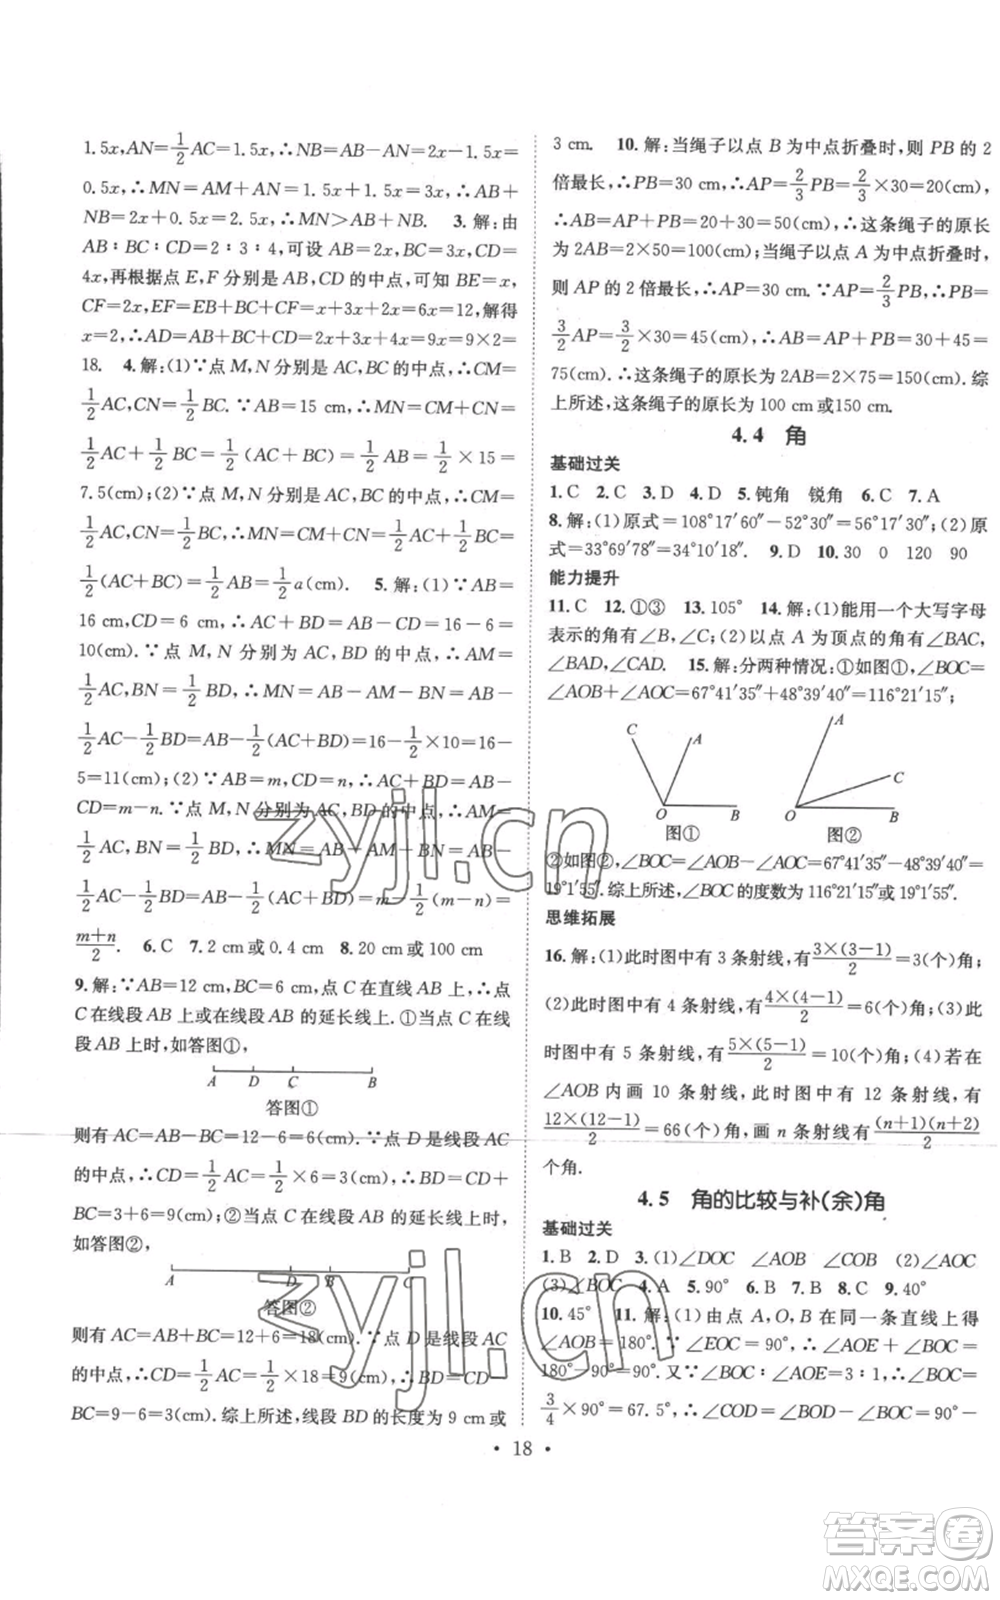 1.5x,AN=1/2AC=1.5x,∴NB=AB-AN=2x-1.5x=
0.5x,∴MN=AM+AN=1.5x+1.5x=3x,∴AB+
NB=2x+0.5x=2.5x,∴MN>AB+NB. 3.解:由
AB∶BC∶CD=2∶3∶4,可设AB=2x,BC=3x,CD=
4x,再根据点E,F分别是AB,CD的中点,可知BE=x,
CF=2x,EF=EB+BC+CF=x+3x+2x=6x=12,解得
x=2,∴AD=AB+BC+CD=2x+3x+4x=9x=9×2=
18. 4.解:(1)∵点M,N分别是AC,BC的中点,∴CM=
1/2AC,CN=1/2BC.∵AB=15 cm,∴MN=CM+CN=
1/2AC+1/2BC=1/2(AC+BC)=1/2AB=1/2×15=
7.5(cm);(2)∵点M,N分别是AC,BC的中点,∴CM=
1/2AC,CN=1/2BC.∴MN=CM+CN=1/2AC+1/2BC=
1/2(AC+BC)=1/2AB=1/2a(cm). 5.解:(1)∵AB=
16 cm,CD=6 cm,∴AC+BD=AB-CD=16-6=
10(cm).∵点M,N分别为AC,BD的中点,∴AM=
1/2AC,BN=1/2BD,∴MN=AB-AM-BN=AB-
1/2AC-1/2BD=AB-1/2(AC+BD)=16-1/2×10=16-
5=11(cm);(2)∵AB=m,CD=n,∴AC+BD=AB-
CD=m-n.∵点M,N分别为AC,BD的中点,∴AM=
1/2AC,BN=1/2BD,∴MN=AB-AM-BN=AB-
1/2AC-1/2BD=AB-1/2(AC+BD)=m-1/2(m-n)=
(m+n)/2. 6.C 7.2 cm或0.4 cm 8.20 cm或100 cm
9.解:∵AB=12 cm,BC=6 cm,点C在直线AB上,∴点
C在线段AB上或在线段AB的延长线上.①当点C在线
段AB上时,如答图①,
A D C B
答图①
则有AC=AB-BC=12-6=6(cm).∵点D是线段AC
的中点,∴CD=1/2AC=1/2×6=3(cm),∴BD=CD+
BC=3+6=9(cm);②当点C在线段AB的延长线上时,
如答图②,
A D B C
答图②
则有AC=AB+BC=12+6=18(cm).∵点D是线段AC
的中点,∴CD=1/2AC=1/2×18=9(cm),∴BD=CD-
BC=9-6=3(cm).综上所述,线段BD的长度为9 cm或
3 cm. 10.解:当绳子以点B为中点折叠时,则PB的2
倍最长,∴PB=30 cm,∴AP=2/3PB=2/3×30=20(cm),
∴AB=AP+PB=20+30=50(cm),∴这条绳子的原长
为2AB=2×50=100(cm);当绳子以点A为中点折叠时,
则AP的2倍最长,∴AP=30 cm.∵AP=2/3PB,∴PB=
3/2AP=3/2×30=45(cm),∴AB=AP+PB=30+45=
75(cm).∴这条绳子的原长为2AB=2×75=150(cm).综
上所述,这条绳子的原长为100 cm或150 cm.
4.4 角
基础过关
1.C 2.C 3.D 4.D 5.钝角 锐角 6.C 7.A
8.解:(1)原式=108°17′60″-52°30″=56°17′30″;(2)原
式=33°69′78″=34°10′18″. 9.D 10.30 0 120 90
能力提升
11.C 12.①③ 13.105° 14.解:(1)能用一个大写字母
表示的角有∠B,∠C;(2)以点A为顶点的角有∠BAC,
∠BAD,∠CAD. 15.解:分两种情况:①如图①,∠BOC=
∠AOB+∠AOC=67°41′35″+48°39′40″=116°21′15″;
C A O B
图①
A C O B
图②
②如图②,∠BOC=∠AOB-∠AOC=67°41′35″-48°39′40″=
19°1′55″.综上所述,∠BOC的度数为116°21′15″或19°1′55″.
思维拓展
16.解:(1)此时图中有3条射线,有3×(3-1)/2=3(个)角;
(2)此时图中有4条射线,有4×(4-1)/2=6(个)角;(3)此
时图中有5条射线,有5×(5-1)/2=10(个)角;(4)若在
∠AOB内画10条射线,此时图中有12条射线,有
12×(12-1)/2=66(个)角,画n条射线有(n+1)(n+2)/2
个角.
4.5 角的比较与补(余)角
基础过关
1.B 2.D 3.(1)∠DOC ∠AOB ∠COB (2)∠AOC
(3)∠BOC 4.A 5.90° 6.B 7.B 8.C 9.40°
10.45° 11.解:(1)由点A,O,B在同一条直线上得
∠AOB=180°.∵∠EOC=90°,∴∠AOE+∠BOC=
180°-90°=90°.又∵∠BOC∶∠AOE=3∶1,∴∠BOC=
3/4×90°=67.5°,∴∠COD=∠BOD-∠BOC=90°-
·18·
zyjl.cn
zyjl.cn
答案圈
MXQE.COM